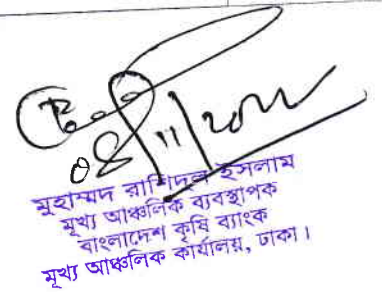 মুহাম্মদ রাশিদুল ইসলাম
মুখ্য আঞ্চলিক ব্যবস্থাপক
বাংলাদেশ কৃষি ব্যাংক
মুখ্য আঞ্চলিক কার্যালয়, ঢাকা।